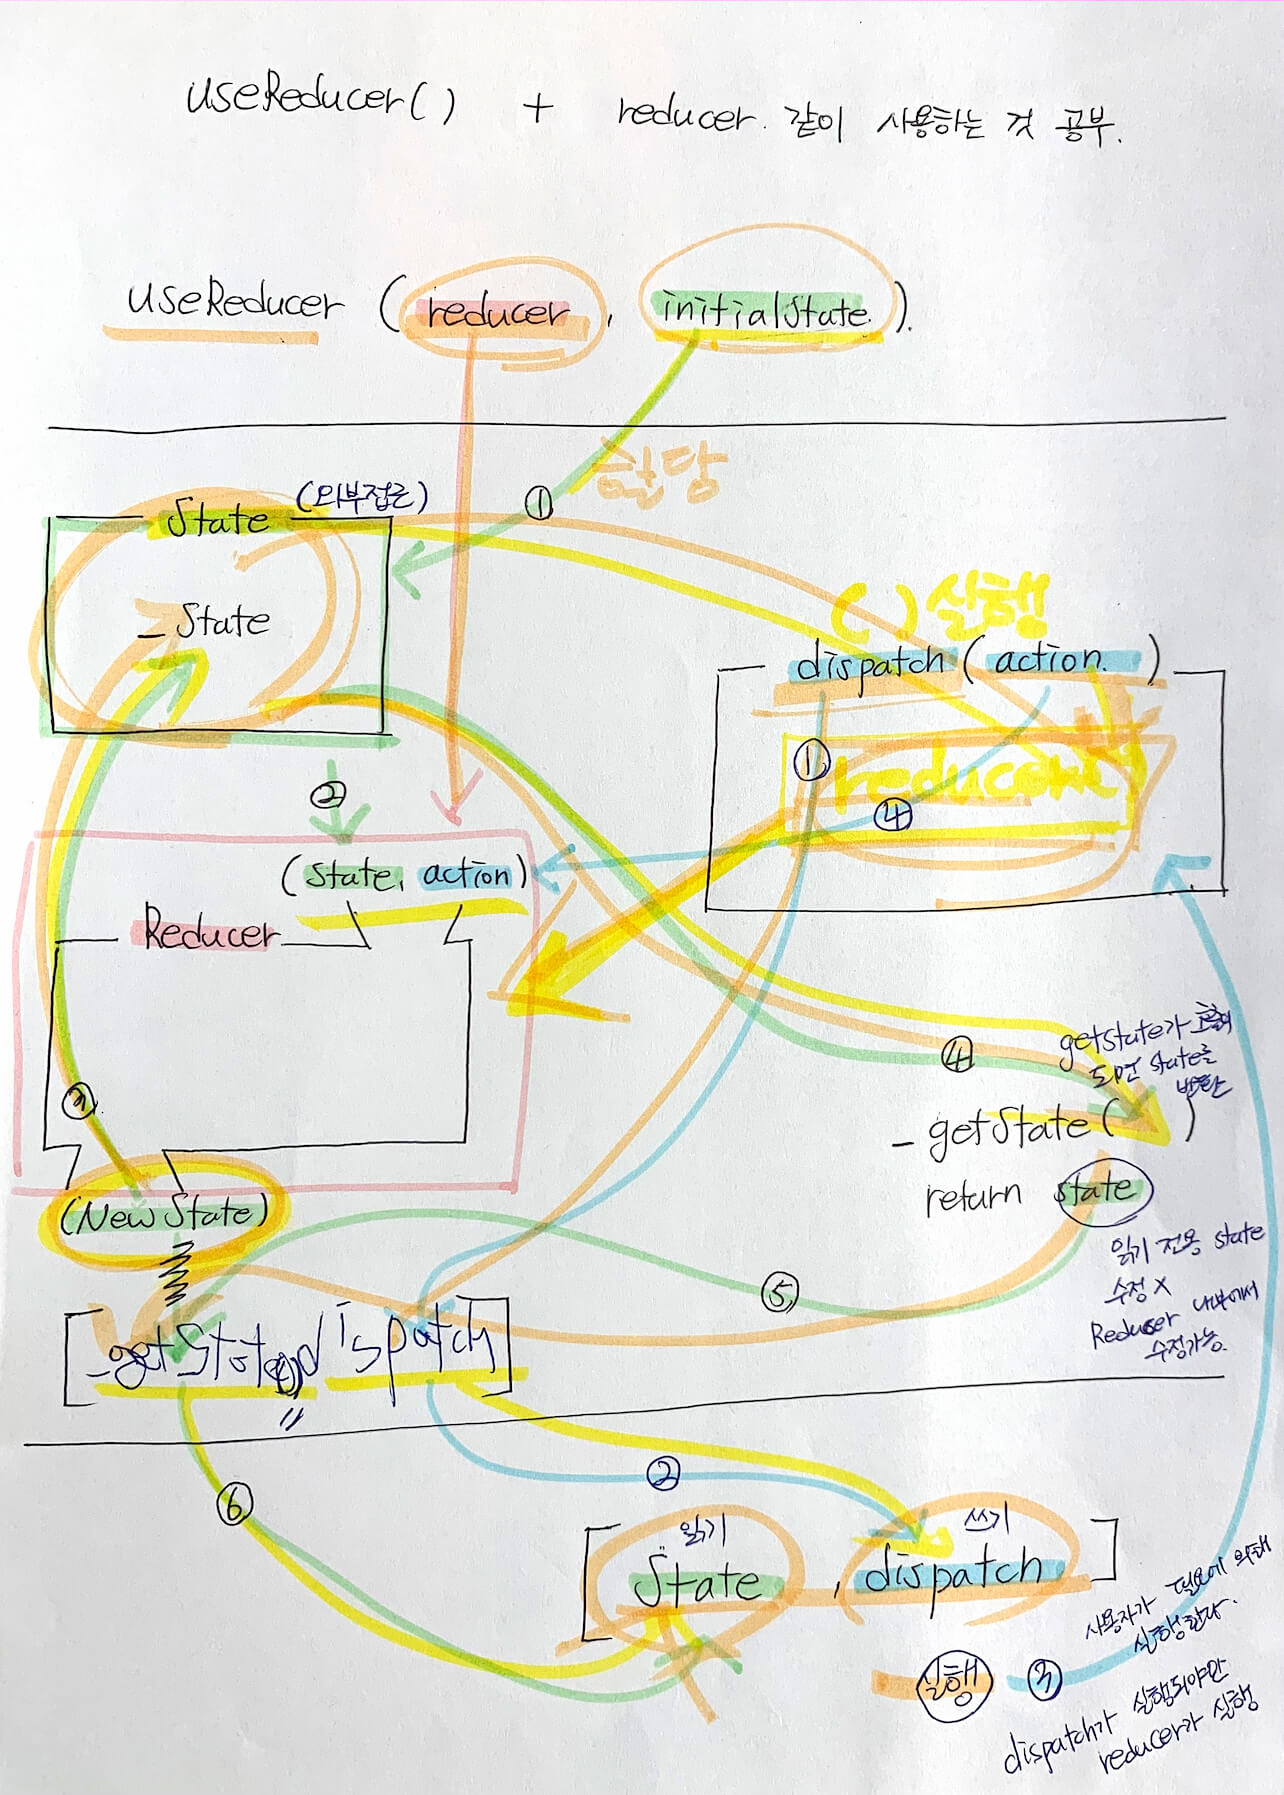 useReducer() + reducer. 같이 사용하는 것 공부.
useReducer (reducer, initialState).
할당
①
State (외부접근)
_State
( ) 실행
dispatch (action. )
①
④
②
(State, action)
Reducer
④
getState가 호출이
되면 state를
반환
_ getState( )
return state
(New State)
읽기 전용 state
수정 X
Reducer 내부에서
수정가능.
⑤
[_getState, dispatch]
②
⑥
읽기 쓰기
[State, dispatch]
사용자가 필요에 의해
실행한다.
실행 ③
dispatch가 실행되야만
reducer가 실행